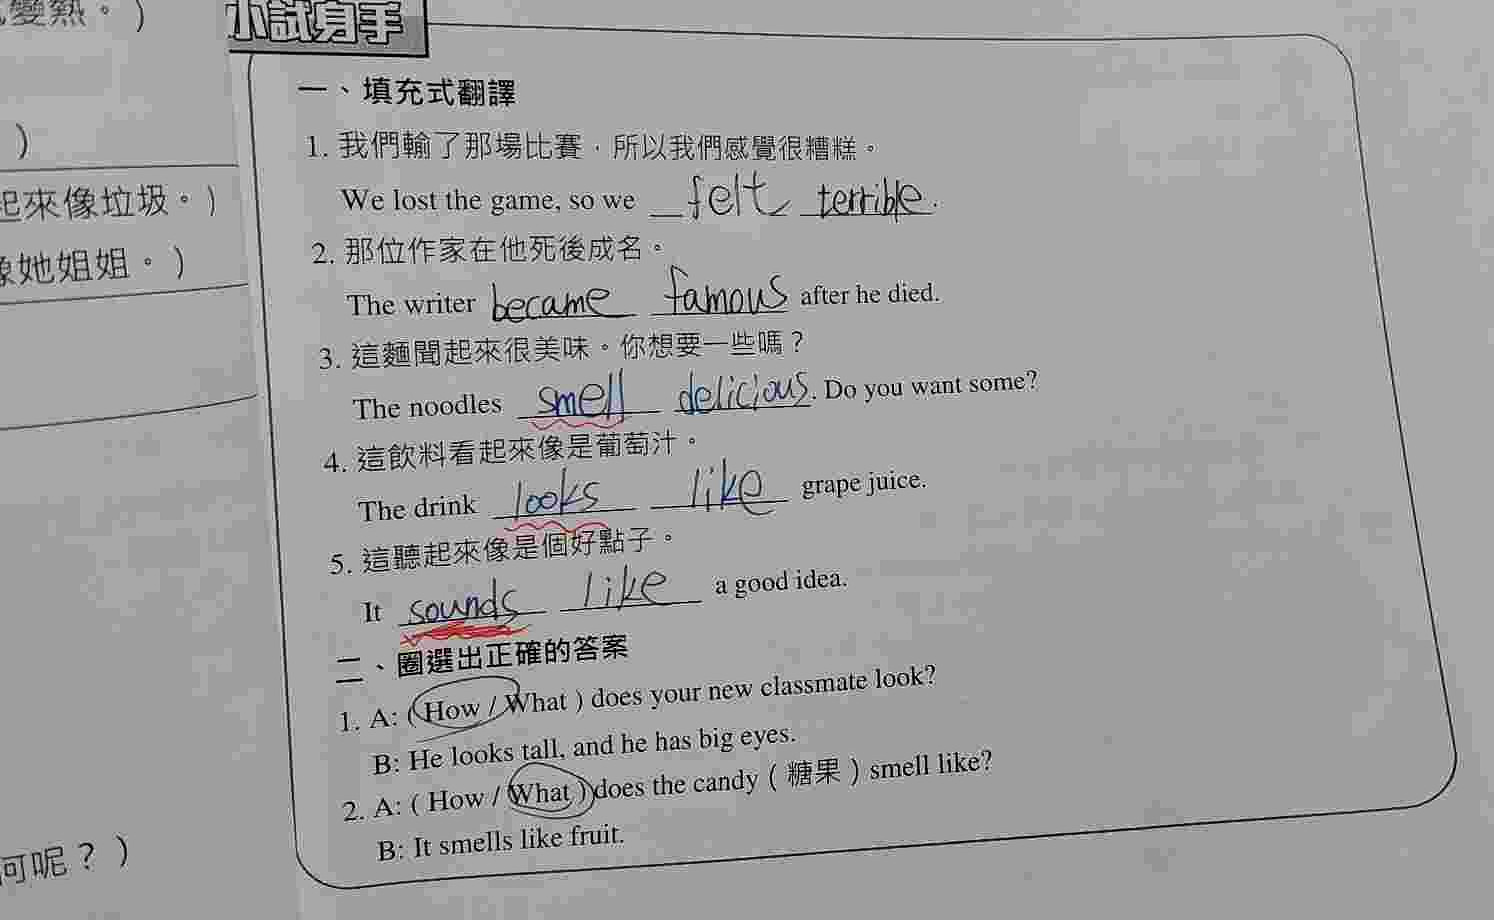 變熱。)
小試身手
一、填充式翻譯
)
1. 我們輸了那場比賽，所以我們感覺很糟糕。
起來像垃圾。)
We lost the game, so we felt terrible.
2. 那位作家在他死後成名。
像她姐姐。)
The writer became famous after he died.
3. 這麵聞起來很美味。你想要一些嗎？
The noodles smell delicious. Do you want some?
4. 這飲料看起來像是葡萄汁。
The drink looks like grape juice.
5. 這聽起來像是個好點子。
It sounds like a good idea.
二、圈選出正確的答案
1. A: ( How / What ) does your new classmate look?
B: He looks tall, and he has big eyes.
2. A: ( How / What ) does the candy ( 糖果 ) smell like?
B: It smells like fruit.
何呢？)